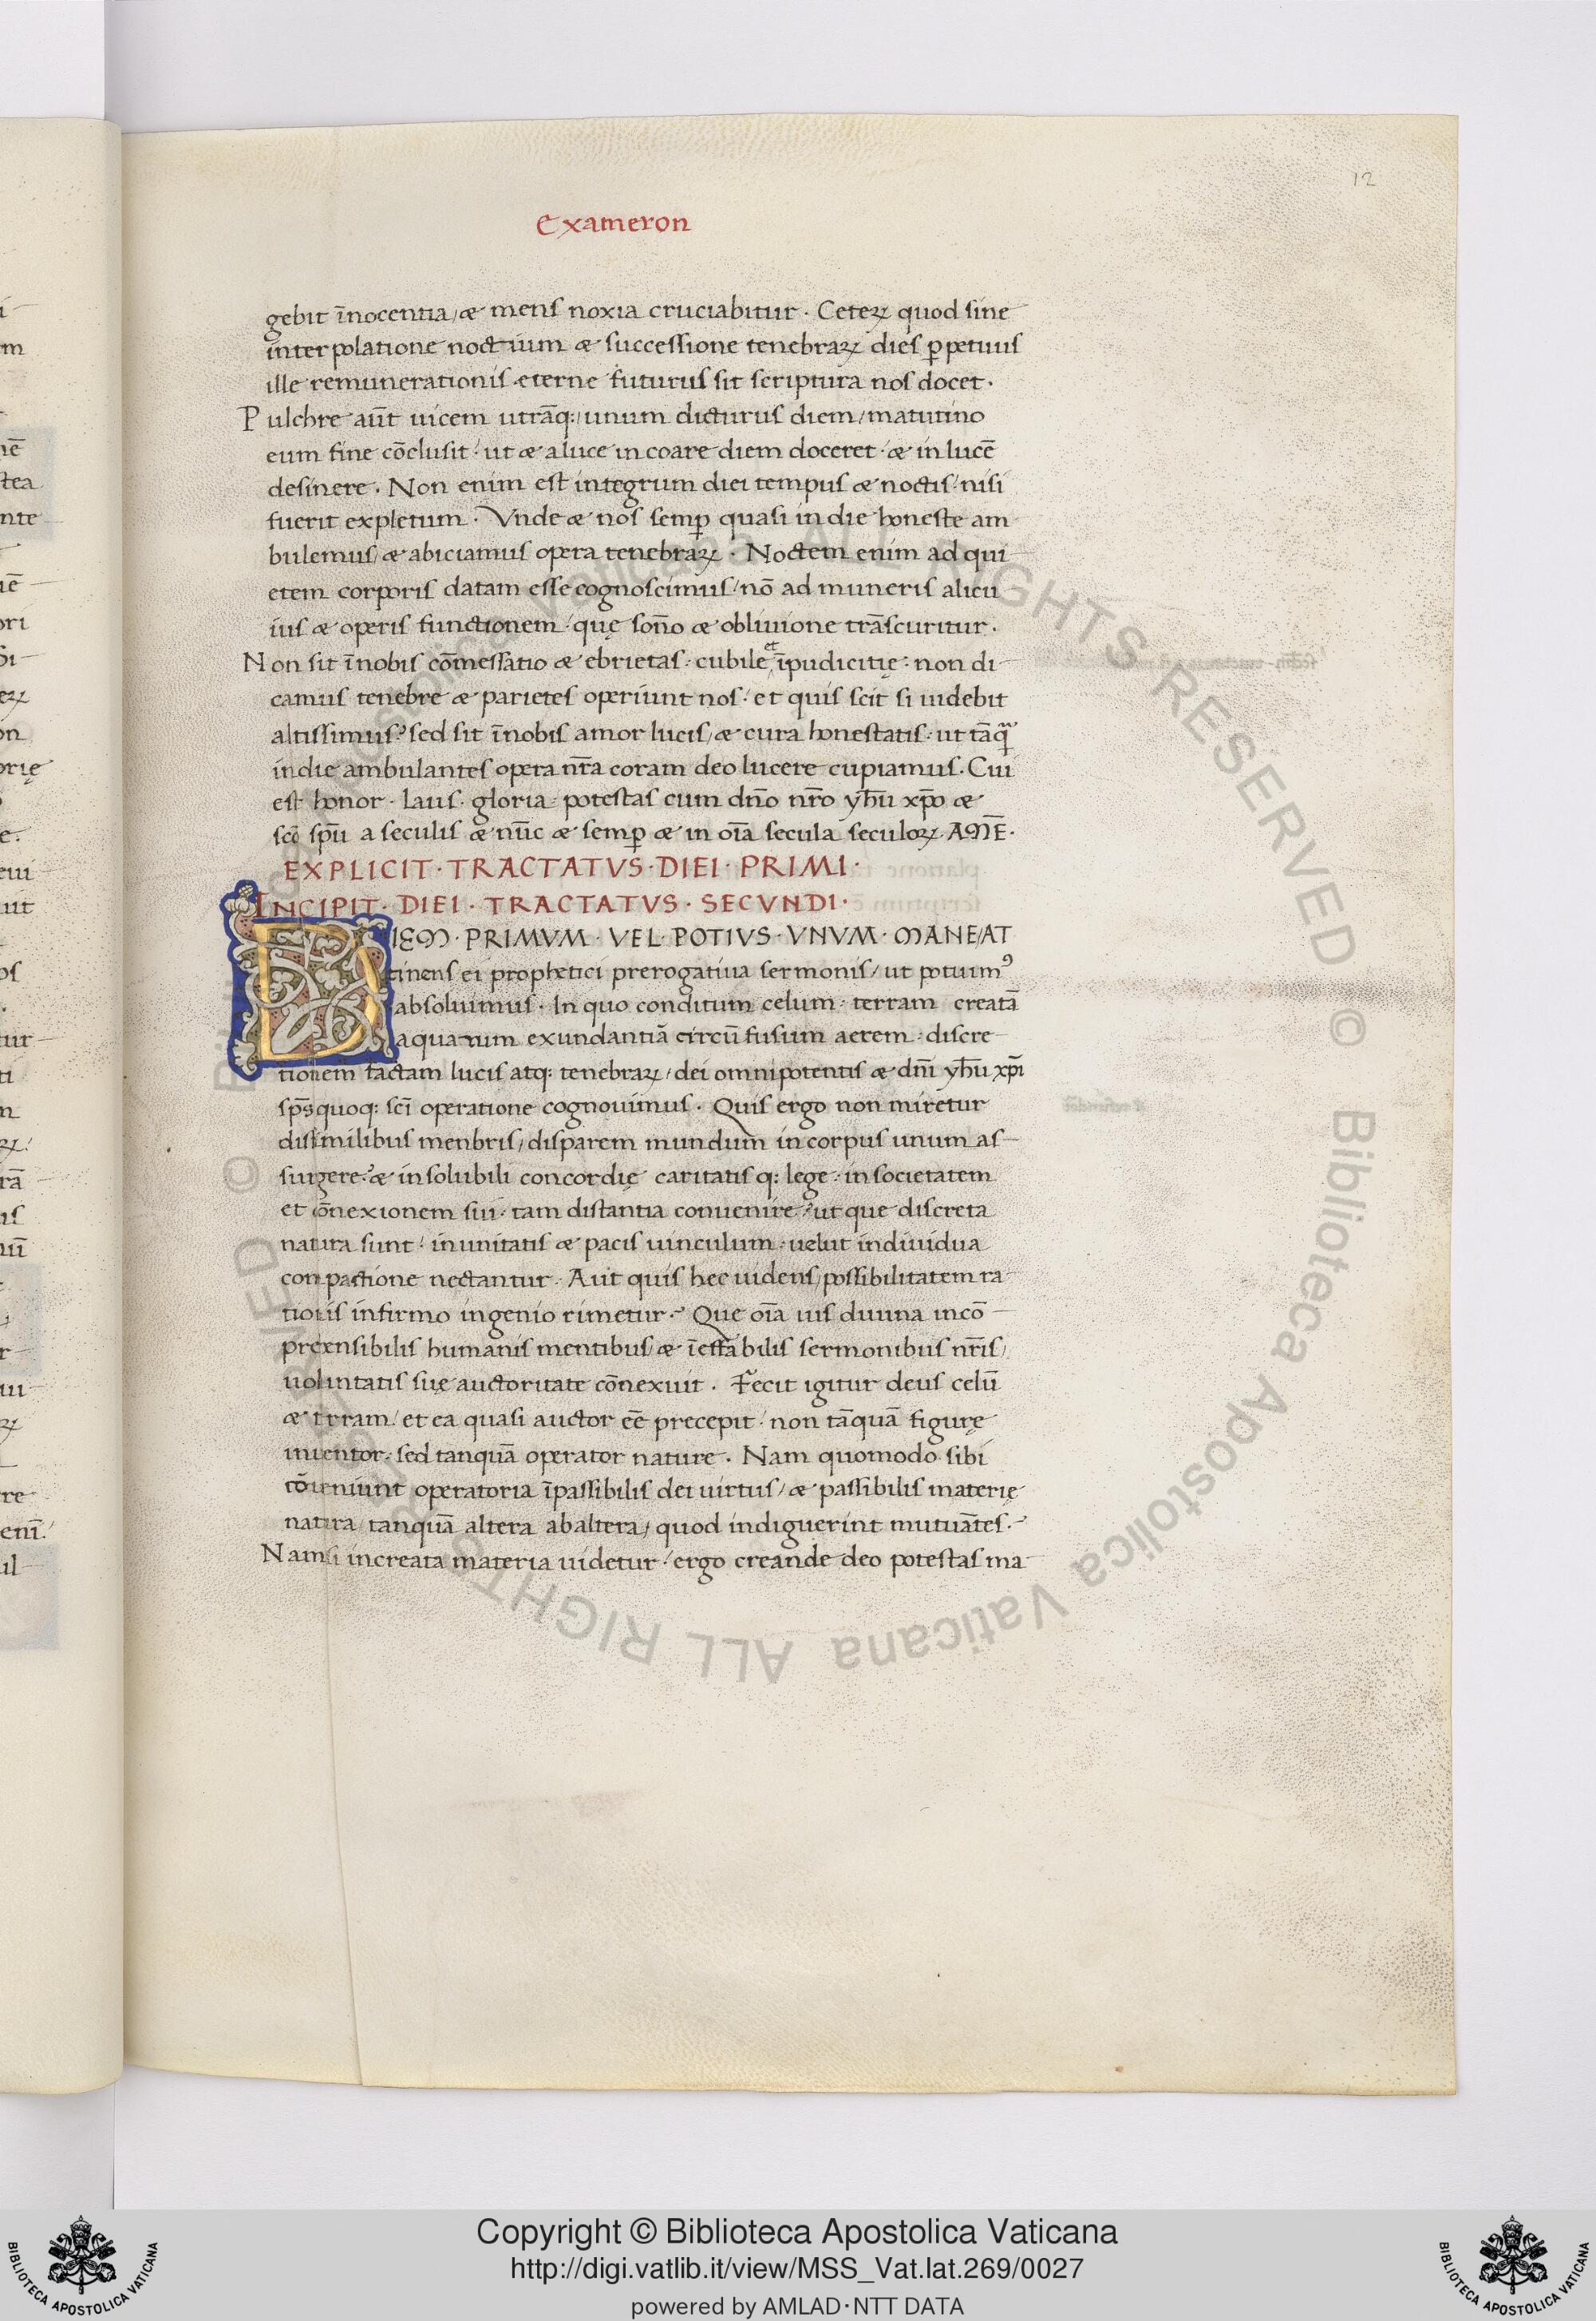 12
Exameron
gebit īnocentia/ æ mens noxia cruciabitur · Ceteꝝ quod sine
interpolatione noctium æ successione tenebraꝝ dies ꝑpetuus
ille remunerationis eterne futurus sit scriptura nos docet ·
Pulchre aūt uicem utrāq:/ unum dicturus diem/ matutino
eum fine cōclusit · ut æ aluce incoare diem doceret · æ in lucē
desinere · Non enim est integrum diei tempus æ noctis · nisi
fuerit expletum · Vnde æ nos semꝑ quasi in die honeste am
bulemus/ æ abiciamus opera tenebraꝝ · Noctem enim ad qui
etem corporis datam esse cognoscimus/ nō ad muneris alicu
ius æ operis functionem · quę sōno æ obliuione trāscuritur ·
Non sit īnobis cōmessatio æ ebrietas · cubile et īpudicitię · non di
camus tenebre æ parietes operiunt nos · et quis scit si uidebit
altissimus? sed sit īnobis amor lucis/ æ cura honestatis · ut tāq̄
indie ambulantes opera nr̄a coram deo lucere cupiamus · Cui
est honor · laus · gloria · potestas cum dn̄o nr̄o yhū xp̄o æ
scō spū a seculis æ nūc æ semꝑ æ in oīa secula seculoꝝ · AMĒ ·
EXPLICIT · TRACTATVS · DIEI · PRIMI ·
INCIPIT · DIEI · TRACTATVS · SECVNDI ·
DIEM · PRIMVM · VEL · POTIVS · VNVM · MANE/AT
tinens ei prophetici prerogatiua sermonis/ ut potuimꝰ
absoluimus · In quo conditum celum · terram creatā
aquarum exundantiā circū fusum aerem · discre
tionem factam lucis atq: tenebraꝝ/ dei omnipotentis æ dn̄i yhū xp̄i
sp̄s quoq: scī operatione cognouimus · Quis ergo non miretur
disimilibus menbris/ disparem mundum incorpus unum as
surgere? æ insolubili concordię caritatis q: lege · in societatem
et cōnexionem sui · tam distantia conuenire? ut que discreta
natura sunt · inunitatis æ pacis uinculum · uelut indiuidua
conpactione nectantur · Aut quis hec uidens/ possibilitatem ra
tionis infirmo ingenio rimetur · Que oīa uis diuina incō
prexensibilis humanis mentibus/ æ īeffabilis sermonibus nr̄is/
uoluntatis suę auctoritate cōnexuit · Fecit igitur deus celū
æ terram/ et ea quasi auctor eē precepit · non tāquā figurę
inuentor · sed tanquā operator nature · Nam quomodo sibi
cōueniunt operatoria īpassibilis dei uirtus/ æ passibilis materię
natura/ tanquā altera abaltera/ quod indiguerint mutuātes ·
Namsi increata materia uidetur · ergo creande deo potestas ma
Copyright © Biblioteca Apostolica Vaticana
http://digi.vatlib.it/view/MSS_Vat.lat.269/0027
powered by AMLAD·NTT DATA